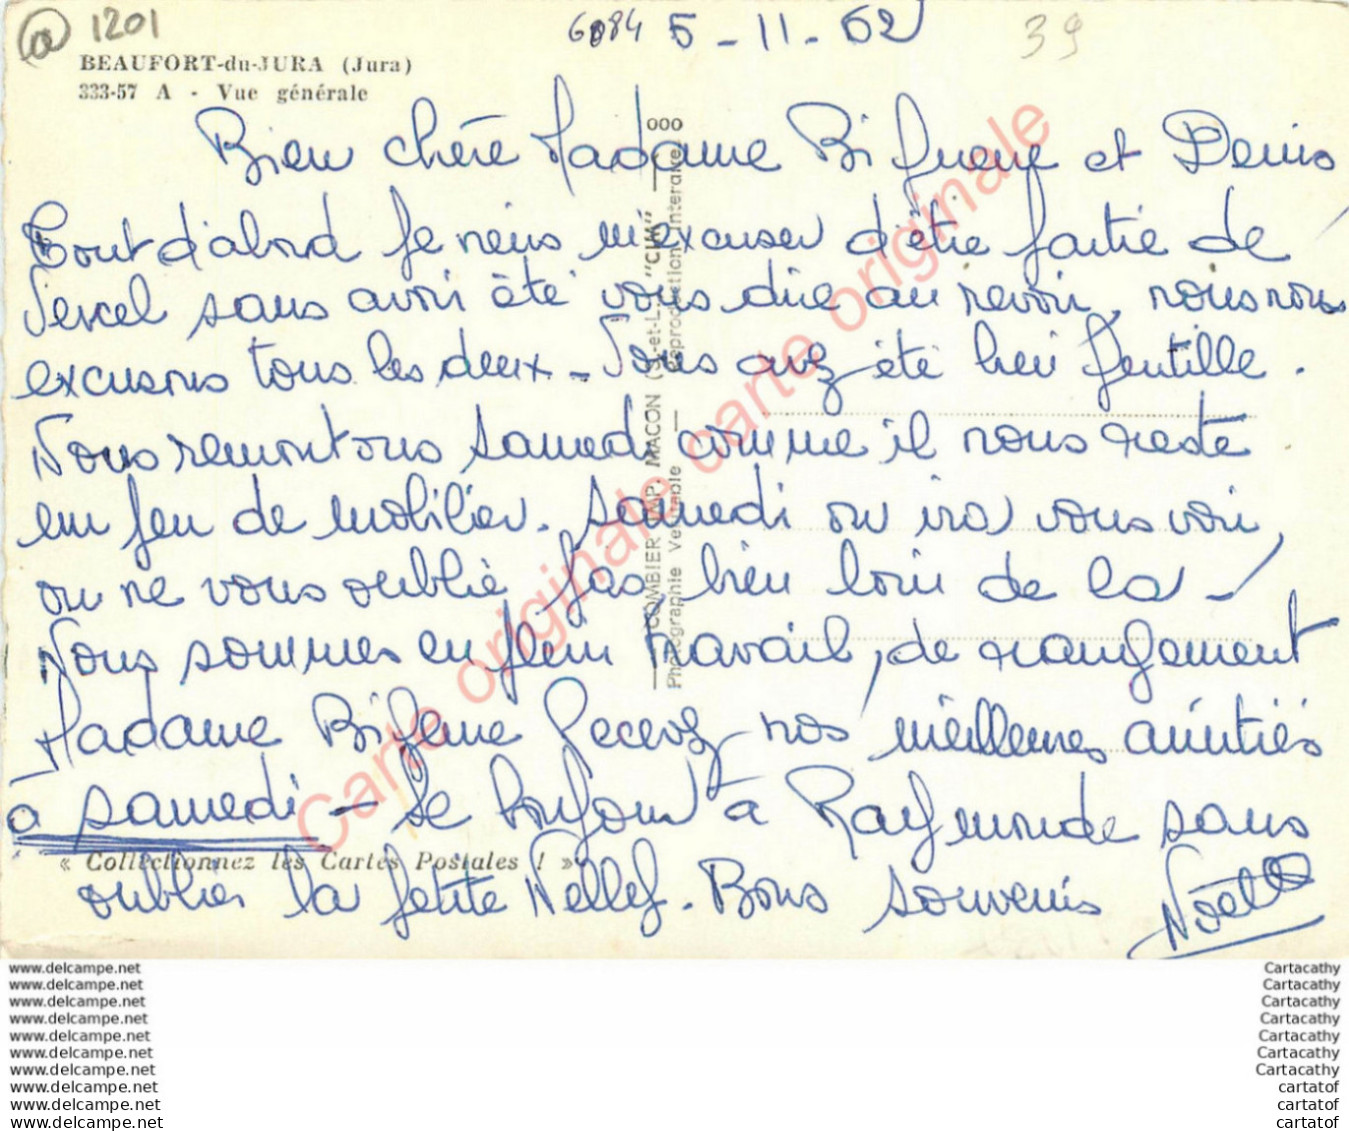 1201
6084 5-11-62 39
BEAUFORT-du-JURA (Jura)
333-57 A - Vue générale
Bien chère Madame Bi et Denis
Tout d'abord je viens m'excuser d'être partie de
Vercel sans avoir été vous dire au revoir, nous nous
excusons tous les deux - Vous avez été bien gentille.
Nous remontons samedi comme il nous reste
un peu de mobilier. Samedi on ira vous voir,
on ne vous oublie pas, bien loin de la -
Nous sommes en plein travail, de rangement
Madame Recevez nos meilleures amitiés
à samedi - Le bonjour à Raymonde sans
oublier la petite Nelley. Bons souvenirs
Noël
« Collectionnez les Cartes Postales ! »
COMBIER IMP. MACON (S.-et-L.) "CIM"
Photographie Véritable — Reproduction interdite
000
Carte originale carte originale
www.delcampe.net
www.delcampe.net
www.delcampe.net
www.delcampe.net
www.delcampe.net
www.delcampe.net
www.delcampe.net
www.delcampe.net
www.delcampe.net
www.delcampe.net
Cartacathy
Cartacathy
Cartacathy
Cartacathy
Cartacathy
Cartacathy
Cartacathy
cartatof
cartatof
cartatof